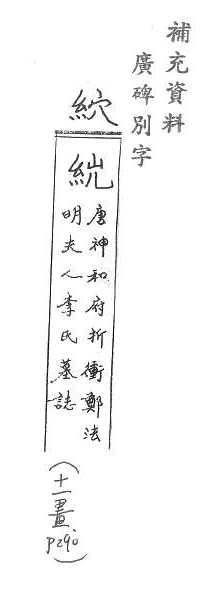 補充資料
廣碑別字
唐神和府折衝鄭法
明夫人李氏墓誌
(十一畫 p290)